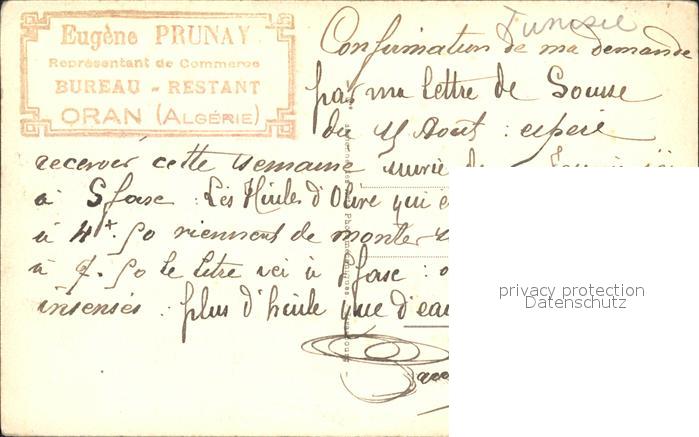 Eugène PRUNAY
Représentant de Commerce
BUREAU - RESTANT
ORAN (ALGÉRIE)
Tunisie
Confirmation de ma demande
par ma lettre de Sousse
du Août : espère
recevoir cette semaine
à Sfax : Les Huiles d'Olive qui
à 4f.50 viennent de monter
à 7.50 le litre ici à Sfax :
insensés : plus d'huile que d'eau
privacy protection
Datenschutz